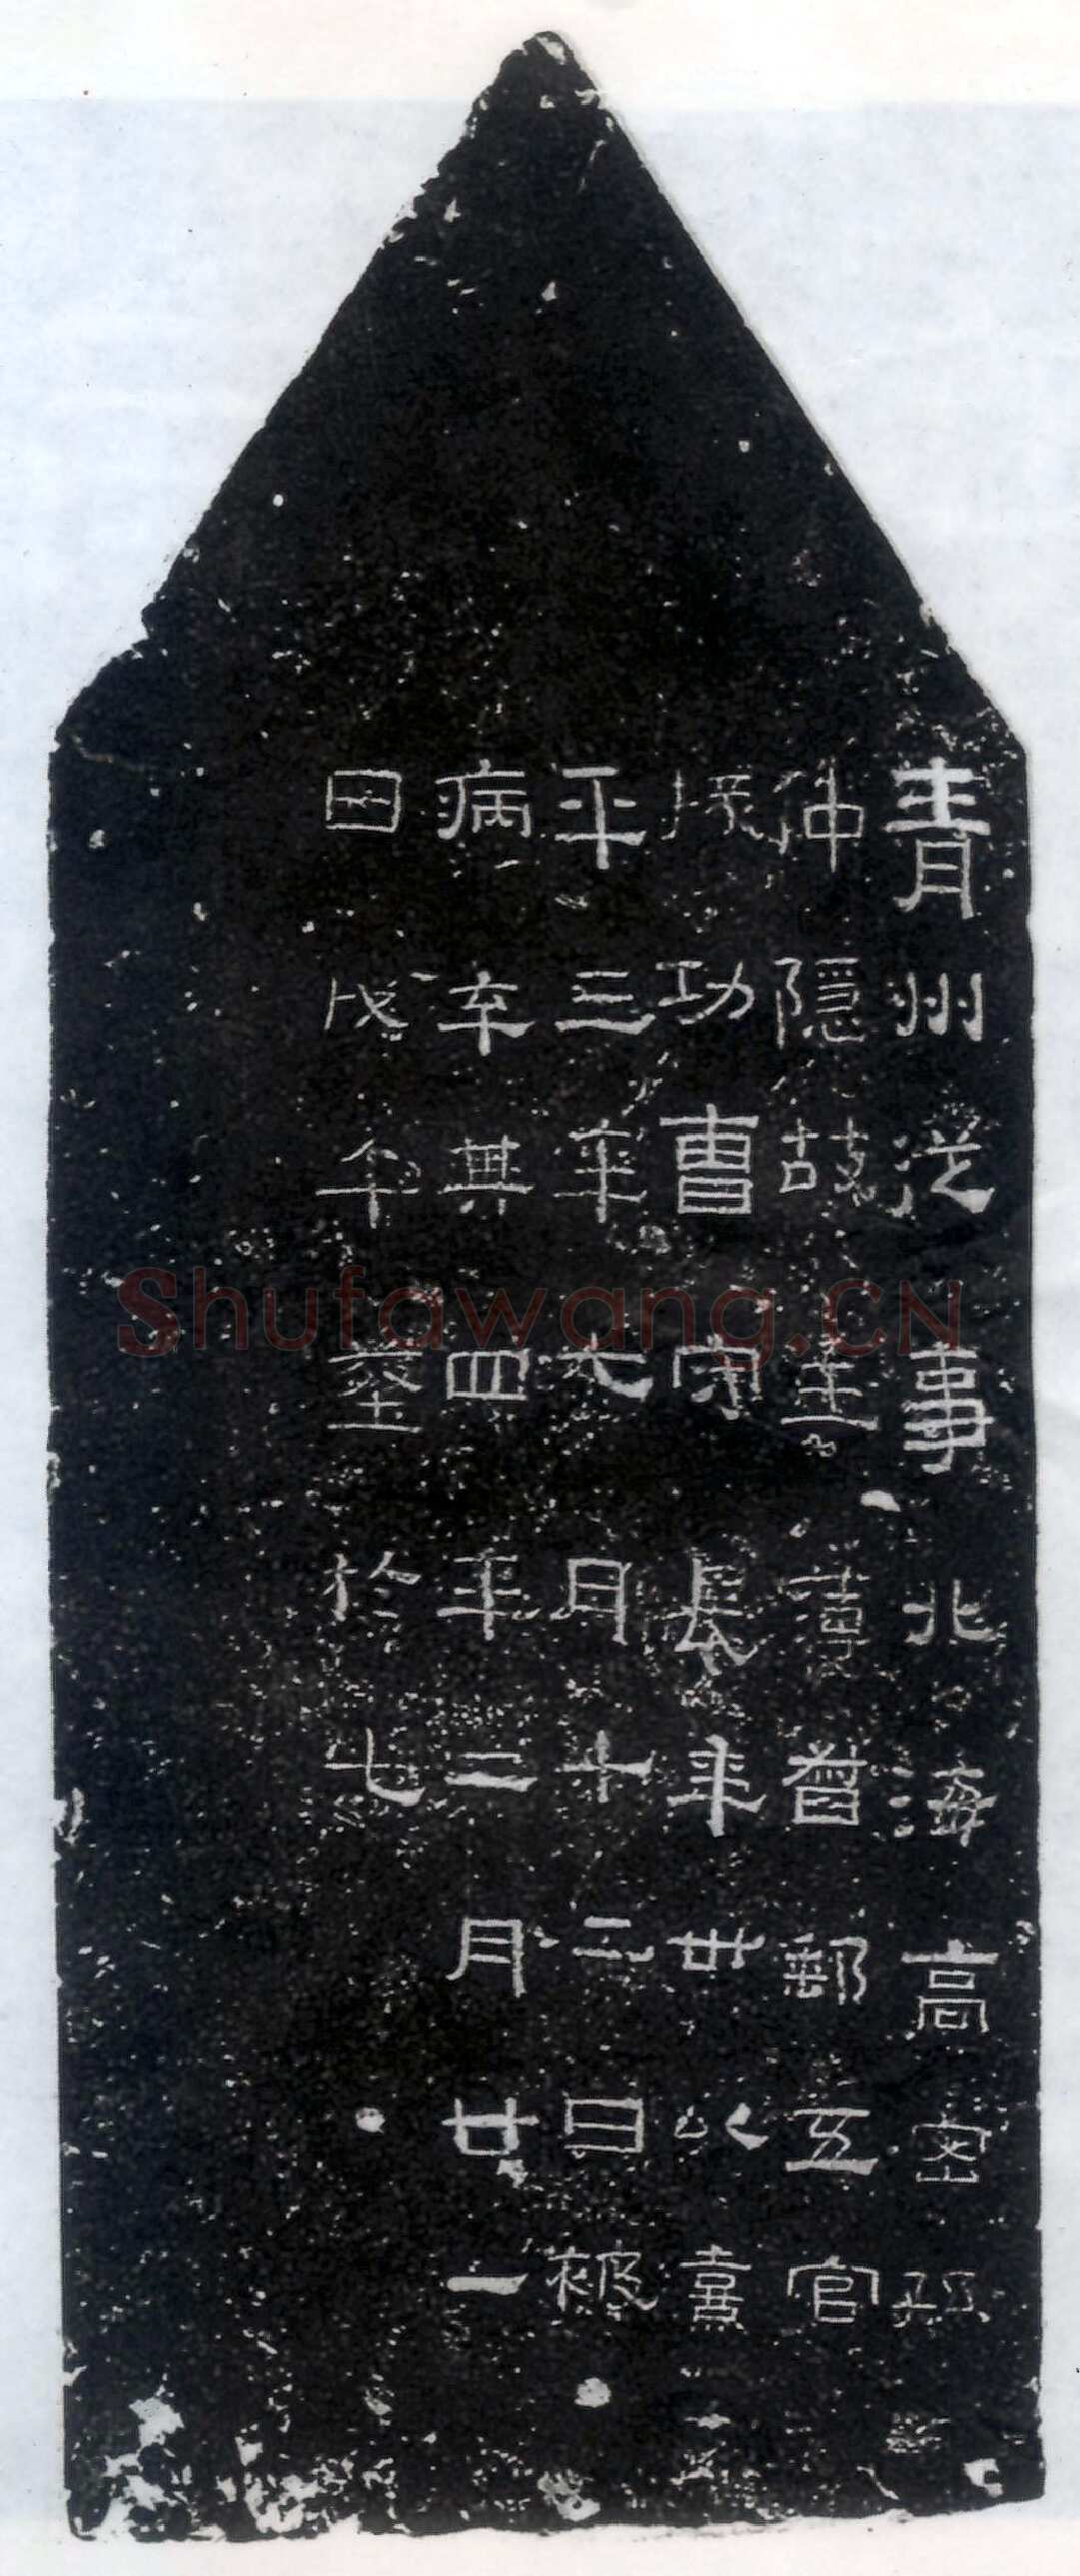 青州從事北海高密孫
仲隱故主簿督郵五官
掾功曹守長年卅以熹
平三年七月十二日被
病卒其四年二月廿一
日戊午塟於七
Shufawang.CN